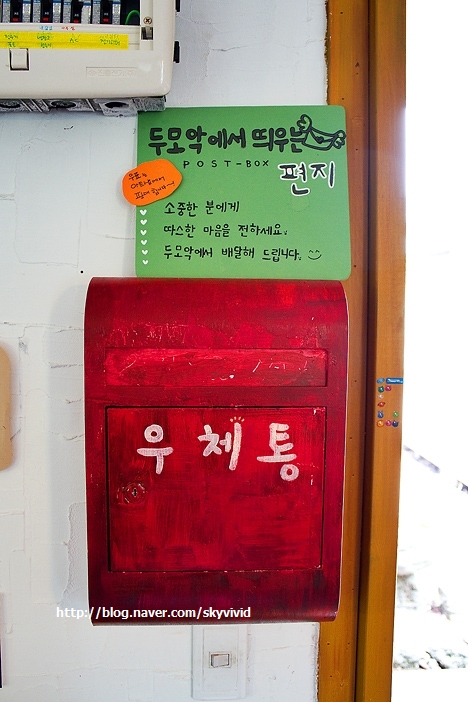 두모악에서 띄우는
POST-BOX
편지
우표는
판매 합니다~
소중한 분에게
따스한 마음을 전하세요.
두모악에서 배달해 드립니다.
우체통
http://blog.naver.com/skyvivid